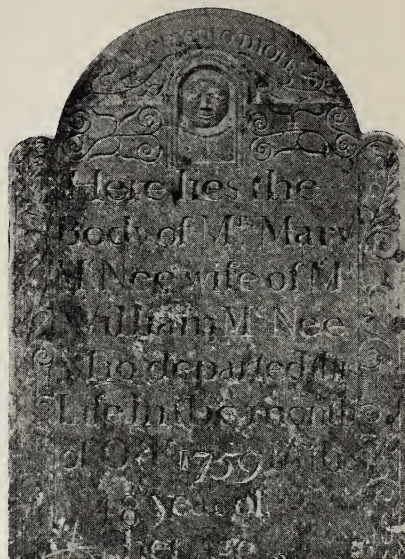 memento mori
Here lies the
Body of Mrs Mary
McNee wife of Mr
William McNee
who departed this
Life In the month
of Octr 1759
year of
her age